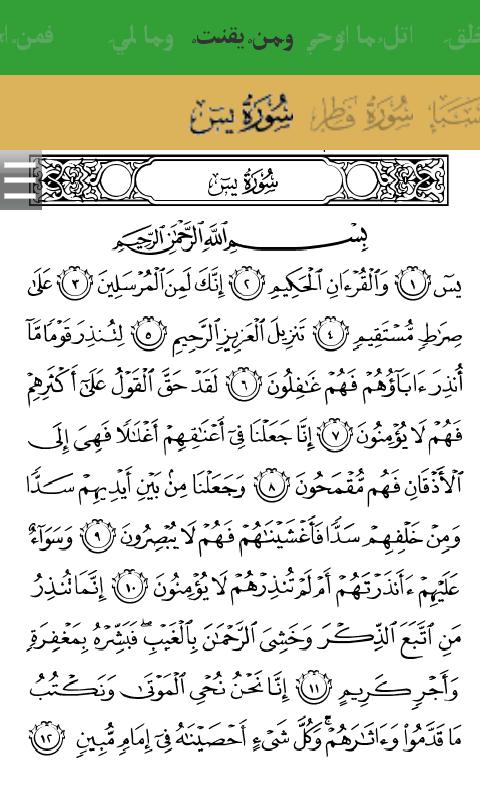 خلق اتل ما اوحي ومن يقنت وما لمي فمن ا
سَبَإ سُورَةُ فَاطِر سُورَةُ يسٓ
سُورَةُ يسٓ
بِسْمِ ٱللَّهِ ٱلرَّحْمَٰنِ ٱلرَّحِيمِ
يسٓ ﴿١﴾ وَٱلْقُرْءَانِ ٱلْحَكِيمِ ﴿٢﴾ إِنَّكَ لَمِنَ ٱلْمُرْسَلِينَ ﴿٣﴾ عَلَىٰ
صِرَٰطٍ مُّسْتَقِيمٍ ﴿٤﴾ تَنزِيلَ ٱلْعَزِيزِ ٱلرَّحِيمِ ﴿٥﴾ لِتُنذِرَ قَوْمًا مَّآ
أُنذِرَ ءَابَآؤُهُمْ فَهُمْ غَٰفِلُونَ ﴿٦﴾ لَقَدْ حَقَّ ٱلْقَوْلُ عَلَىٰٓ أَكْثَرِهِمْ
فَهُمْ لَا يُؤْمِنُونَ ﴿٧﴾ إِنَّا جَعَلْنَا فِىٓ أَعْنَٰقِهِمْ أَغْلَٰلًا فَهِىَ إِلَى
ٱلْأَذْقَانِ فَهُم مُّقْمَحُونَ ﴿٨﴾ وَجَعَلْنَا مِنۢ بَيْنِ أَيْدِيهِمْ سَدًّا
وَمِنْ خَلْفِهِمْ سَدًّا فَأَغْشَيْنَٰهُمْ فَهُمْ لَا يُبْصِرُونَ ﴿٩﴾ وَسَوَآءٌ
عَلَيْهِمْ ءَأَنذَرْتَهُمْ أَمْ لَمْ تُنذِرْهُمْ لَا يُؤْمِنُونَ ﴿١٠﴾ إِنَّمَا تُنذِرُ
مَنِ ٱتَّبَعَ ٱلذِّكْرَ وَخَشِىَ ٱلرَّحْمَٰنَ بِٱلْغَيْبِ ۖ فَبَشِّرْهُ بِمَغْفِرَةٍ
وَأَجْرٍ كَرِيمٍ ﴿١١﴾ إِنَّا نَحْنُ نُحْىِ ٱلْمَوْتَىٰ وَنَكْتُبُ
مَا قَدَّمُوا۟ وَءَاثَٰرَهُمْ ۚ وَكُلَّ شَىْءٍ أَحْصَيْنَٰهُ فِىٓ إِمَامٍ مُّبِينٍ ﴿١٢﴾